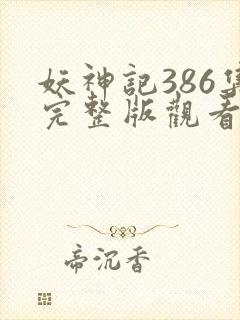 妖神記386集
完整版觀看
帝沉香